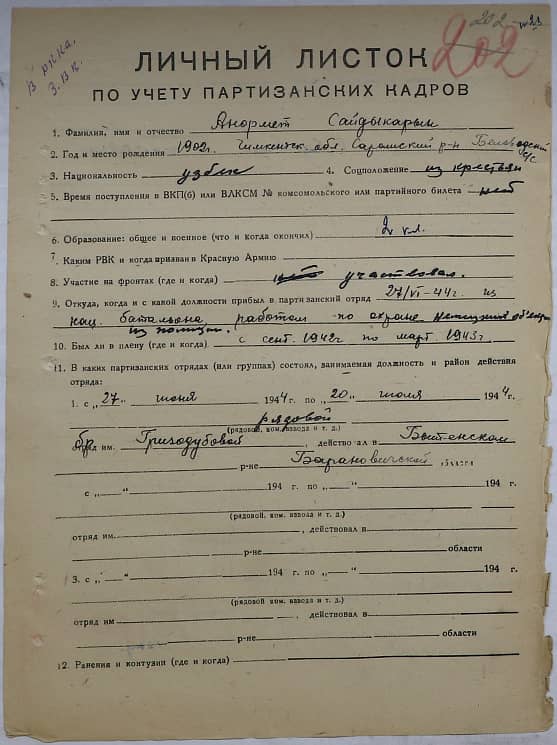 202
202
ЛИЧНЫЙ ЛИСТОК
ПО УЧЕТУ ПАРТИЗАНСКИХ КАДРОВ
1. Фамилия, имя и отчество Анормет Сайдыкарын
2. Год и место рождения 1902г. Чимкентск. обл. Сарамский р-н
с/с
3. Национальность узбек 4. Соцположение из крестьян
5. Время поступления в ВКП(б) или ВЛКСМ № комсомольского или партийного билета нет
6. Образование: общее и военное (что и когда окончил) 2 кл.
7. Каким РВК и когда призван в Красную Армию
8. Участие на фронтах (где и когда) участвовал.
9. Откуда, когда и с какой должности прибыл в партизанский отряд 27/VI-44г. из
нац. батальона, работал по охране
из полиции.
10. Был ли в плену (где и когда) с сент. 1942г по март 1943г
11. В каких партизанских отрядах (или группах) состоял, занимаемая должность и район действия
отряда:
1. с „27“ июня 1944 г. по „20“ июля 1944г.
рядовой
(рядовой, ком. взвода и т. д.)
бр. отряд им. Гризодубовой, действовал в Бытенском
р-не Барановичской области
с „ “ 194 г. по „ “ 194 г.
(рядовой, ком. взвода и т. д.)
отряд им. , действовал в
р-не области
3. с „ “ 194 г. по „ “ 194 г.
(рядовой, ком. взвода и т. д.)
отряд им , действовал в
р-не области
12. Ранения и контузии (где и когда)